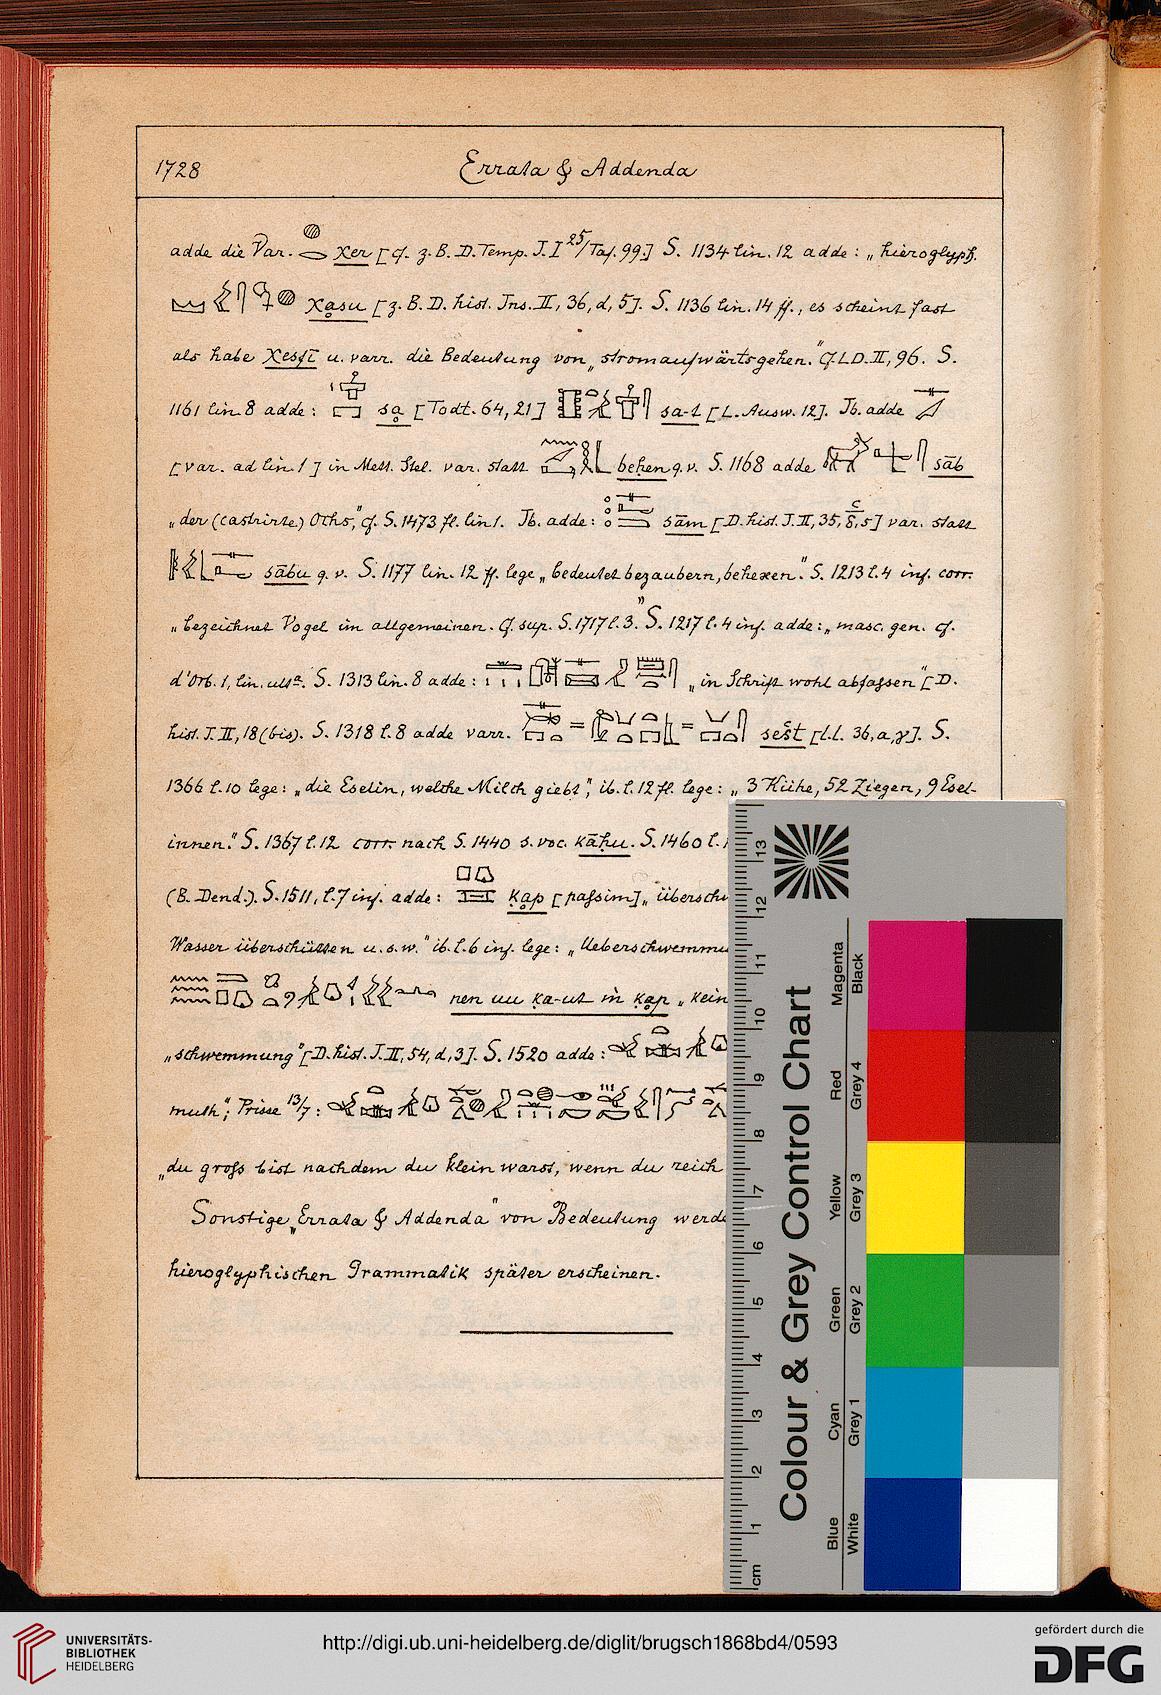 1728 Errata & Addenda
adde die Var. χer [cf. z. B. D. Temp. J. I 25/Taf. 99.] S. 1134 lin. 12 adde: „hieroglyph.
χasu [z. B. D. hist. Ins. II, 36, d, 5]. S. 1136 lin. 14 ff., es scheint fast
als habe χesfi u. varr. die Bedeutung von „stromaufwärtsgehen." Cf. LD. II, 96. S.
1161 lin. 8 adde: sa [Todt. 64, 21] sa-t [L. Ausw. 12]. Ib. adde
[var. ad lin. 1] in Mett. Stel. var. statt beḥen q. v. S. 1168 adde sāb
„der (castrirte) Ochs", cf. S. 1473 fl. lin 1. Ib. adde: sām [D. hist. J. II, 35, 5] var. statt
sābu q. v. S. 1177 lin. 12 ff. lege „bedeutet bezaubern, behexen". S. 1213 l. 4 inf. corr.
„bezeichnet Vogel im allgemeinen. Cf. sup. S. 1717 l. 3." S. 1217 l. 4 inf. adde: „masc. gen. cf.
d'Orb. 1, lin. ulta. S. 1313 lin. 8 adde: „in Schrift wohl abfassen" [D.
hist. J. II, 18 (bis). S. 1318 l. 8 adde varr. = = sešt [l.l. 36, a, γ]. S.
1366 l. 10 lege: „die Eselin, welche Milch giebt", ib. l. 12 fl. lege: „3 Kühe, 52 Ziegen, 9 Esel-
innen." S. 1367 l. 12 corr. nach S. 1440 s. voc. kāḥu. S. 1460 l.
(B. Dend.). S. 1511, l. 7 inf. adde: ḳap [passim] „
Wasser überschütten u. s. w." ib. l. 6 inf. lege: „
nen uu ḳa-ut in ḳap „kein
„schwemmung" [D. hist. J. II, 54, d, 3]. S. 1520 adde:
muth"; Prisse 13/7:
„du gross bist nachdem du klein warst, wenn du reich
Sonstige „Errata & Addenda" von Bedeutung
hieroglyphischen Grammatik später erscheinen.
Colour & Grey Control Chart
Blue Cyan Green Yellow Red Magenta
White Grey 1 Grey 2 Grey 3 Grey 4 Black
cm 1 2 3 4 5 6 7 8 9 10 11 12 13
UNIVERSITÄTS-
BIBLIOTHEK
HEIDELBERG
http://digi.ub.uni-heidelberg.de/diglit/brugsch1868bd4/0593
gefördert durch die
DFG